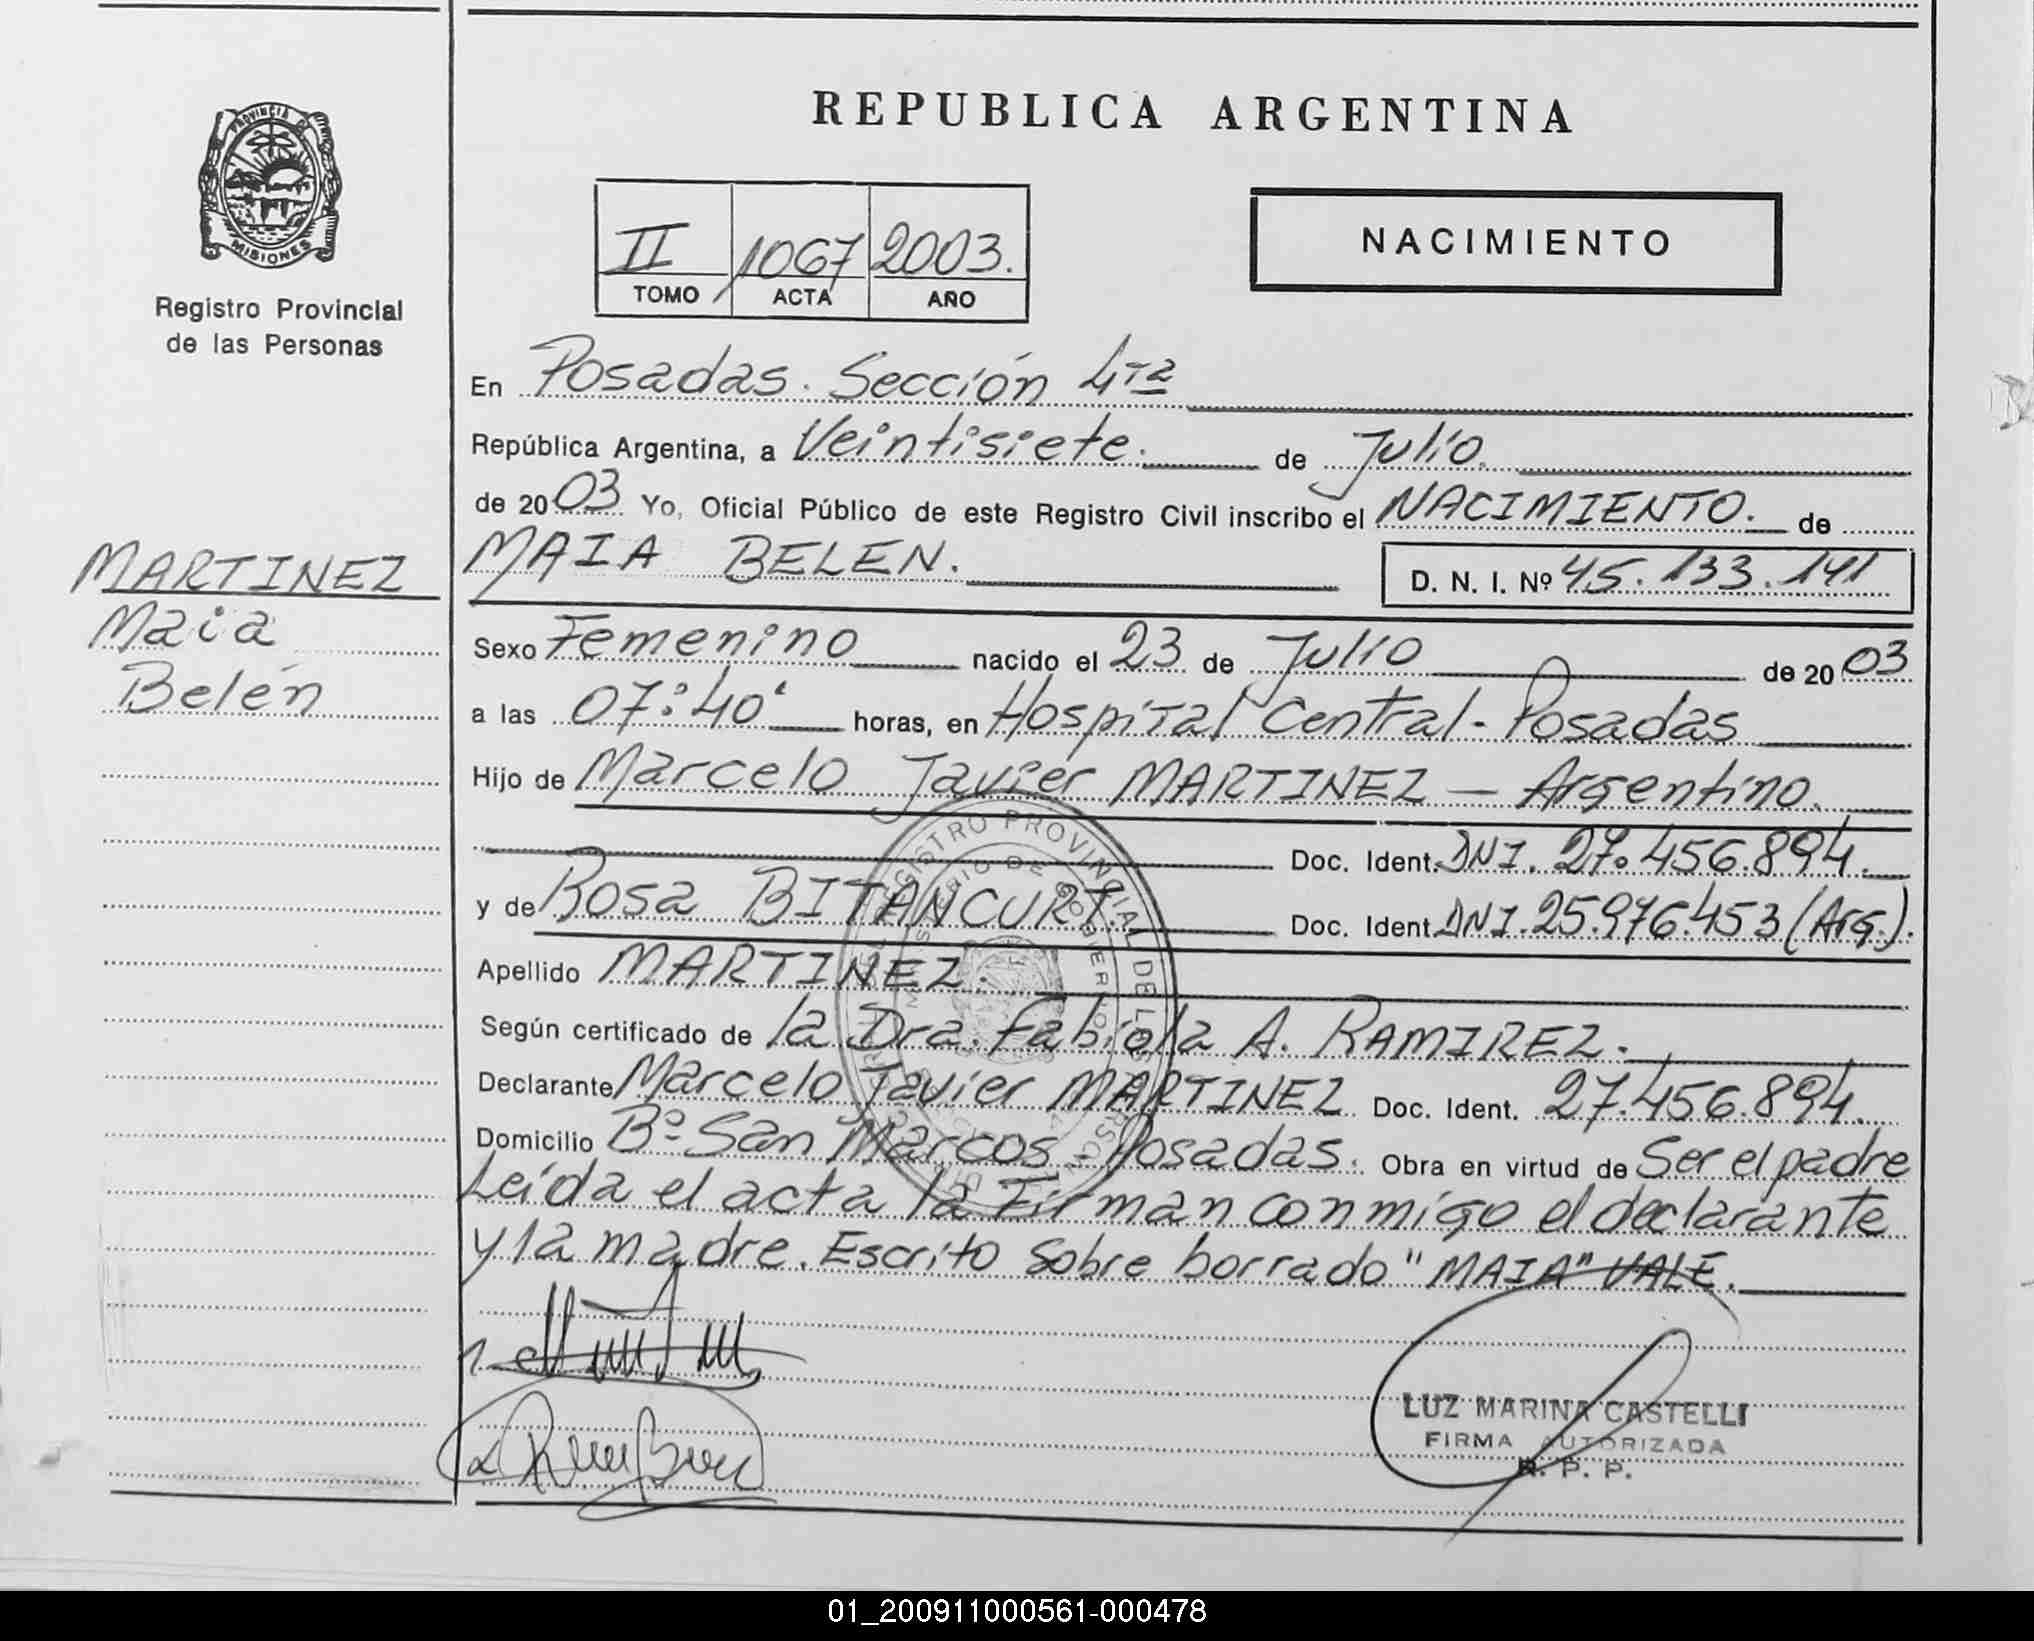 REPUBLICA ARGENTINA
PROVINCIA DE
MISIONES
Registro Provincial
de las Personas
II 1067 2003.
TOMO ACTA AÑO
NACIMIENTO
En Posadas. Sección 4ta
República Argentina, a Veintisiete. de Julio.
de 2003 Yo, Oficial Público de este Registro Civil inscribo el NACIMIENTO. de
MARTINEZ
Maia
Belén
MAIA BELEN. D. N. I. Nº 45.133.141
Sexo Femenino nacido el 23 de Julio de 2003
a las 07:40' horas, en Hospital Central - Posadas
Hijo de Marcelo Javier MARTINEZ — Argentino.
Doc. Ident. DNI. 27.456.894.
y de Rosa BITANCURT. Doc. Ident. DNI. 25.976.453 (Arg.).
Apellido MARTINEZ.
Según certificado de la Dra. Fabiola A. RAMIREZ.
Declarante Marcelo Javier MARTINEZ Doc. Ident. 27.456.894.
Domicilio Bº San Marcos - Posadas. Obra en virtud de Ser el padre
Leída el acta la Firman conmigo el declarante
y la madre. Escrito sobre borrado "MAIA" VALE.
REGISTRO PROVINCIAL DE LAS
MINISTERIO DE GOBIERNO
LUZ MARINA CASTELLI
FIRMA AUTORIZADA
R. P. P.
01_200911000561-000478